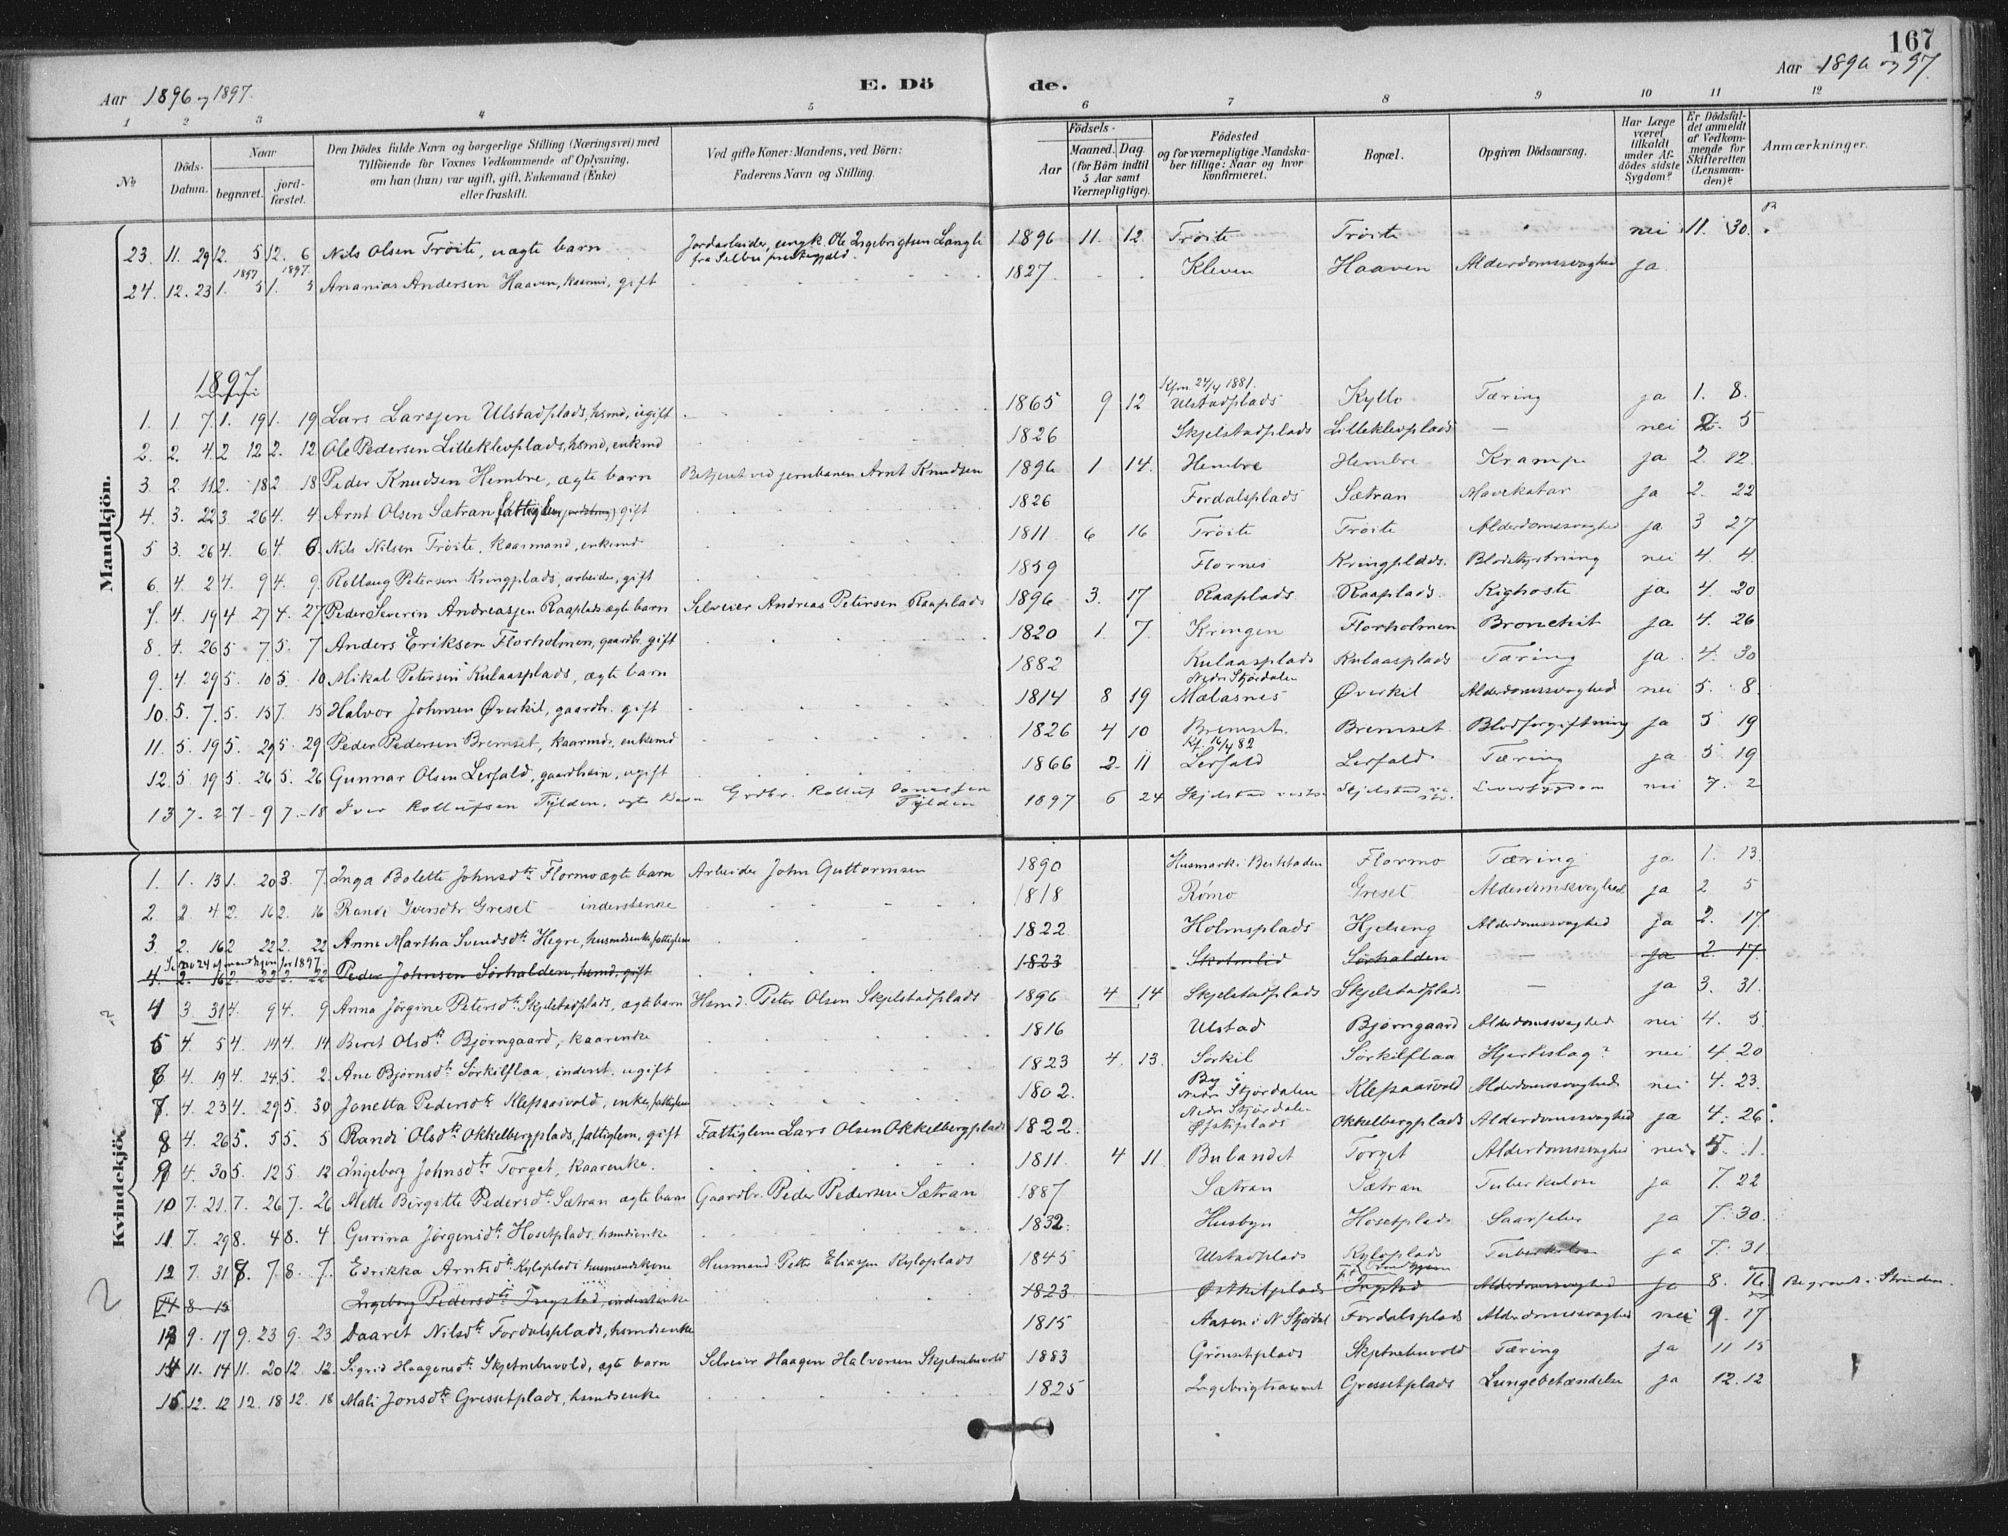 167
Aar 1896 og 1897.
E. Dö de.
Aar 1896 og 97.
1 2 3 4 5 6 7 8 9 10 11 12
No
Döds-Datum.
Naar
begravet.
jord-fæstet.
Den Dödes fulde Navn og borgerlige Stilling (Næringsvei) med
Tilföiende for Voxnes Vedkommende af Oplysning,
om han (hun) var ugift, gift, Enkemand (Enke)
eller fraskilt.
Ved gifte Koner: Mandens, ved Börn:
Faderens Navn og Stilling.
Födsels-
Aar
Maaned. Dag.
(for Börn indtil
5 Aar samt
Værnepligtige).
Födested
og for værnepligtige Mandska-
ber tillige: Naar og hvor
konfirmeret.
Bopæl.
Opgiven Dödsaarsag.
Har Læge
været
tilkaldt
under Af-
dödes sidste
Sygdom?
Er Dödsfal-
det anmeldt
af Vedkom-
mende for
Skifteretten
(Lensman-
den)?
Anmærkninger.
Mandkjön.
23. 11. 29 12. 5 12. 6 Nils Olsen Tröite, uægte barn Jordarbeider, ungk. Ole Ingebrigtsen Langli 1896 11. 12. Tröite Tröite nei 11. 30.
fra Selbu prestegjeld.
1897 1897.
24. 12. 23 1. 5 1. 5 Ananias Andersen Haaven, kaarm., gift 1827. Kleven Haaven Alderdomssvaghed ja
1897.
Kfm 24/4 1881.
1. 1. 7. 1. 19 1. 19 Lars Larssen Ulstadplads, hsmd, ugift 1865 9 12 Ulstadplads Kyllo Tæring ja 1. 8.
2. 2. 4. 2 12 2. 12 Ole Pedersen Lilleklevplads, hsmd, enkmd 1826 Skjelstadplads Lilleklevplads — nei 2. 5
3. 2 11 2. 18 2 18 Peder Knudsen Hembre, ægte barn Betjent ved jernbanen Arnt Knudsen 1896 1 14. Hembre Hembre Kramp. ja 2. 12.
4. 3. 22 3 26 4. 4 Arnt Olsen Sætran fattiglem gift 1826 Fordalsplads Sætran Mavekatar ja 2. 22
5 3. 26 4. 6 4. 6. Nils Nilsen Tröite, kaarmand, enkemd 1811 6 16 Tröite Tröite Alderdomssvaghed ja 3 27
6. 4. 2 4. 9 4. 9. Rollaug Petersen Kringplads, arbeider, gift 1859 Flornes Kringplads. Blodstyrtning nei 4. 4.
7. 4. 19 4 27 4. 27. Peder Severin Andreassen Raaplads ægte barn Selveier Andreas Petersen Raaplads 1896 3. 17 Raaplads Raaplads. Kighoste ja 4. 20
8. 4. 26 5 7 5. 7 Anders Eriksen Florholmen, gaardbr. gift 1820 1. 7. Kringen Florholmen Bronchit ja 4. 26
9. 4. 29 5. 10 5. 10 Mikal Petersen Kulaasplads, ægte barn 1882 Kulaasplads Kulaasplads Tæring ja 4. 30
Nedre Stjördalen
10. 5. 7. 5. 15 7. 15 Halvor Johnsen Överkil, gaardbr. gift 1814 8 19 Malasnes Överkil Alderdomssvaghed nei 5. 8.
11. 5. 19 5. 29 5. 29 Peder Pedersen Bremset, kaarmd., enkemd 1826 4 10 Bremset. Bremset. Blodforgiftning ja 5 19
Kf. 16/4 82
12. 5. 19 5. 26 5. 26 Gunnar Olsen Lerfald, gaardbsön, ugift 1866 2. 11 Lerfald Lerfald Tæring ja 5. 19
13 7 - 2 7 - 9 7 - 18 Iver Rollufsen Tylden. ægte Barn Grdbr. Rolluf Jonassen Tylden 1897 6 24 Skjelstad vestre Skjelstad ve str. Leversygdom nei 7. 2
Kvindekjön
1. 1. 13 1. 20 3. 7. Inga Bolette Johnsdtr Flormo ægte barn Arbeider John Guttormsen 1890 Husmark i Beitstaden Flormo Tæring ja 1. 13.
2. 2 4 2. 16 2. 16 Randi Iversdtr Greset - inderstenke 1818 Römo Greset Alderdomssvaghed ja 2 5
3. 2. 16 2 22 2. 22 Anne Martha Svendsdtr Hegre, husmdsenke, fattiglem 1822 Holmsplads Hjelseng Alderdomssvaghed ja 2. 17.
Se No 24 af mandkjön for 1897.
4. 2. 16 2. 22 2. 22 Peder Johnsen Sörhalden, hsmd, gift 1823 Skolmlid Sörhalden — ja 2. 17.
4 3 31 4. 9 4. 9 Anna Jörgine Petersdtr Skjelstadplads, ægte barn Hsmd. Peter Olsen Skjelstadplads 1896 4 14 Skjelstadplads Skjelstadplads — ja 3. 31.
5 4. 5 4. 14 4. 14 Beret Olsdtr Bjørngaard, kaarenke 1816 Ulstad Bjørngaard Alderdomssvaghed nei 4. 5.
6. 4. 19 4. 24 5. 2. Ane Bjørnsdtr Sörkilflaa, inderst. ugift 1823 4. 13. Sörkil Sörkilflaa Hjerteslag? nei 4. 20
By i
7. 4. 23 4. 29 5. 30 Jonetta Pedersdtr Klefsaasvold, enke, fattiglem 1802. Nedre Stjördalen Klefsaasvold Alderdomssvaghed nei 4. 23.
Nedre Stjördalen
8 4. 26 5. 5 5. 5 Randi Olsdtr Okkelbergplads, fattiglem, gift Fattiglem Lars Olsen Okkelbergplads 1822. Okkelbergplads Alderdomssvaghed ja 4. 26.
9 4. 30 5. 12 5. 12 Ingeborg Johnsdtr Torget, kaarenke. 1811. 4 11. Bulandet Torget Alderdomssvaghed nei 5. 1.
10 7. 21. 7. 26 7. 26 Mette Birgitte Pedersdtr Sætran ægte barn Gaardbr. Peder Pedersen Sætran 1887 Sætran Sætran Tuberkulose ja 7. 22
11. 7. 29 8. 4 8. 4 Gurina Jörgensdtr Hosetplads, hsmdsenke 1832. Husbyn Hosetplads Saarfeber ja 7. 30.
12 7. 31 8. 7. 8. 7. Edrikka Arntsdtr Kyloplads husmandskone Husmand Peter Eliassen Kyloplads 1845 Ulstadplads Kyloplads Tuberkulose ja 7. 31
14 8 12 Ingeborg Pedersdtr Ingstad, inderstenke 1823 Östkilplads Ingstad Alderdomssvaghed ja 8. 16 Begravet i Strinden.
13 9. 17 9. 23 9. 23 Daaret Nilsdtr Fordalsplads, hsmdsenke 1815 Aasen i N Stjördal Fordalsplads Alderdomssvaghed nei 9. 17
14 11. 14 11. 20 12. 12. Sigrid Haagensdtr Skjetnebuvold, ægte barn Selveier Haagen Halvorsen Skjetnebuvold 1883 Grönsetplads Skjetnebuvold Tæring ja 11 15
15 12. 12 12. 18 12. 18 Mali Jonsdtr Gressetplads, hsmdsenke 1825 Gressetplads Lungebetændelse ja 12. 12
2